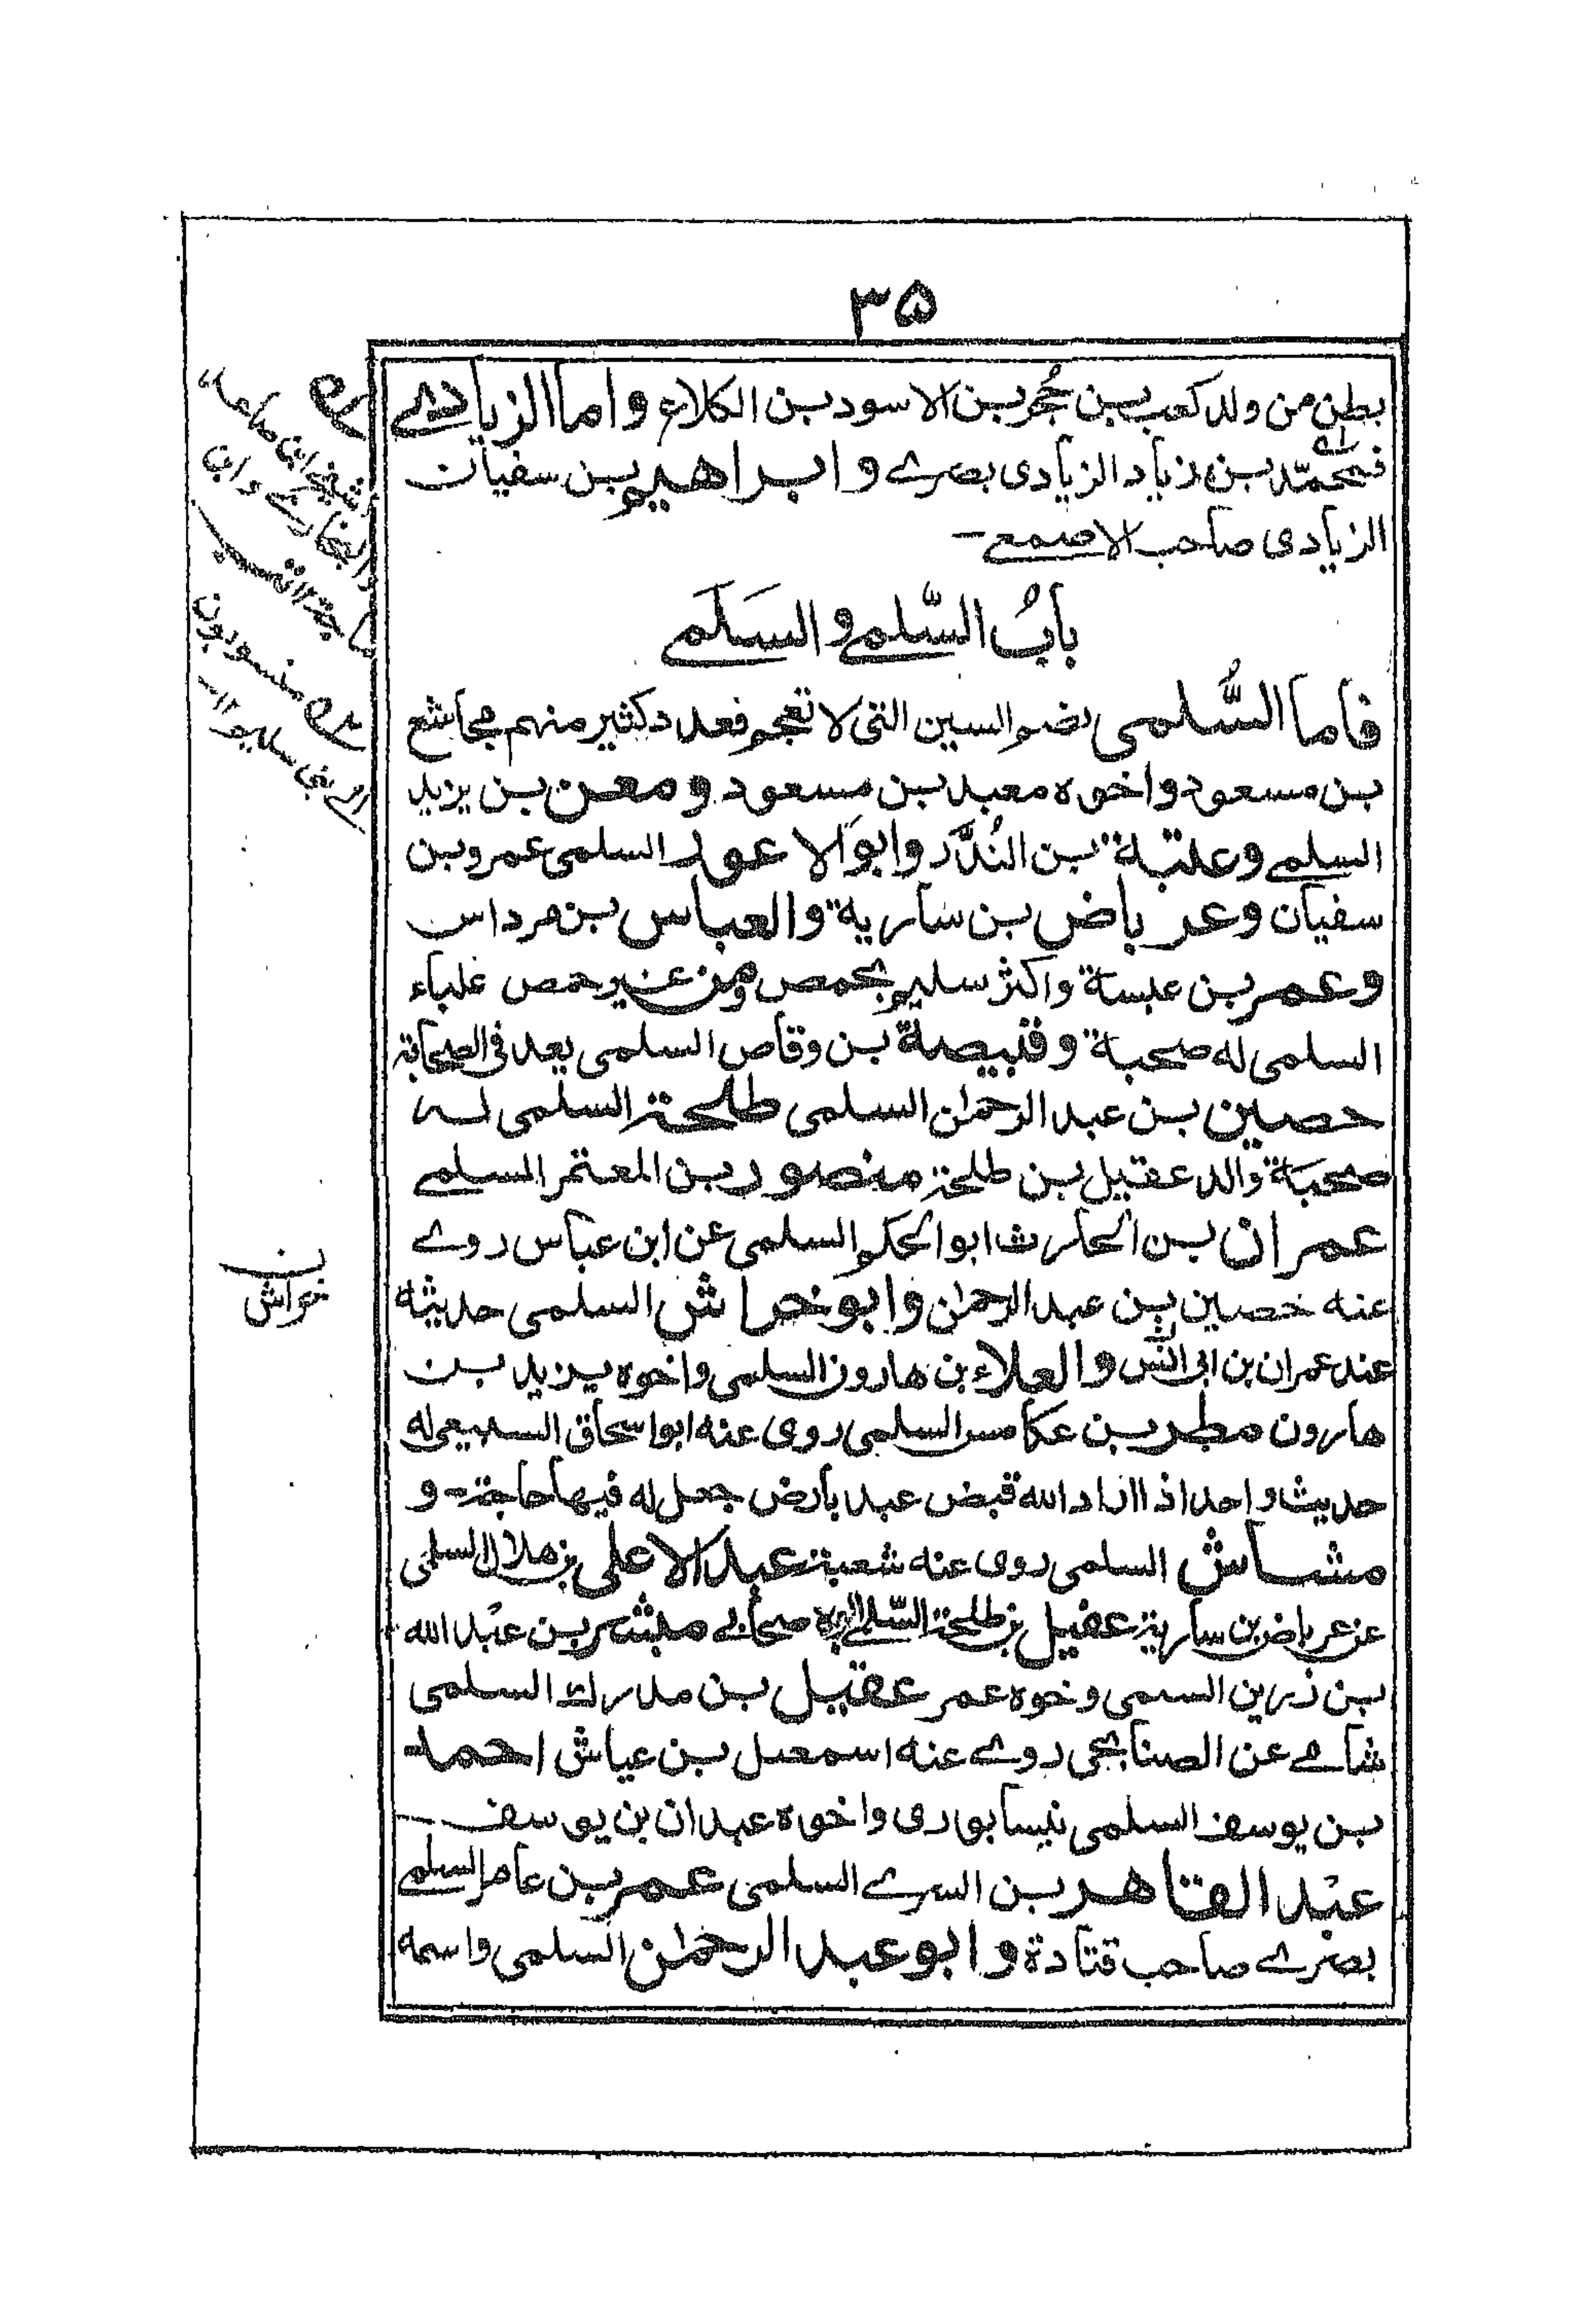 ٣٥
بطن من ولد كعب بن حُجر بن الاسود بن الكلاع واما الزيادے
فمحمّد بن زياد الزيادى بصرے وابراهيم بن سفيان
الزيادى صاحب الاصمعے-
بابُ السُّلمے والسَلَمے
فاما السُّلمى بضم السين التى لا تعجم فعدد كثير منهم مجاشع
بن مسعود واخوه معبد بن مسعود ومعن بن يزيد
السلمے وعلتبة بن النُدَّر وابو الاعور السلمى عمرو بن
سفيان وعرباض بن سارية والعباس بن مرداس
وعمر بن عبسة واكثر سليم بحمص ومن غير حمص علباء
السلمى له صحبة وقبيصة بن وقاص السلمى يعد فى الصحابة
حصين بن عبد الرحمٰن السلمى طلحة السلمى له
صحبة والد عقيل بن طلحة منصور بن المعتمر السلمے
عمران بن الحارث ابو الحكم السلمى عن ابن عباس روے
عنه حصين بن عبد الرحمٰن وابو خراش السلمى حديثه
عند عمران بن ابى انس والعلاء بن هارون السلمى واخوه يزيد بن
هارون مطر بن عكامس السلمى روى عنه ابو اسحاق السبيعى له
حديث واحد اذا اراد الله قبض عبد بارض جعل له فيها حاجة- و
مشاش السلمى روى عنه شعبة عبد الاعلى بن هلال السلمى
عن عرباض بن سارية عقيل بن طلحة السّلمے ابوه صحابے مبشر بن عبد الله
بن زرين السمى وخوه عمر عقيل بن مدرك السلمى
شامے عن الصنابحى روے عنه اسمعيل بن عياش احمد
بن يوسف السلمى نيسابورى واخوه عبدان بن يوسف
عبد القاهر بن السرے السلمى عمر بن عامر السلمے
بصرے صاحب قتادة وابو عبد الرحمٰن السلمى واسمه
خراش